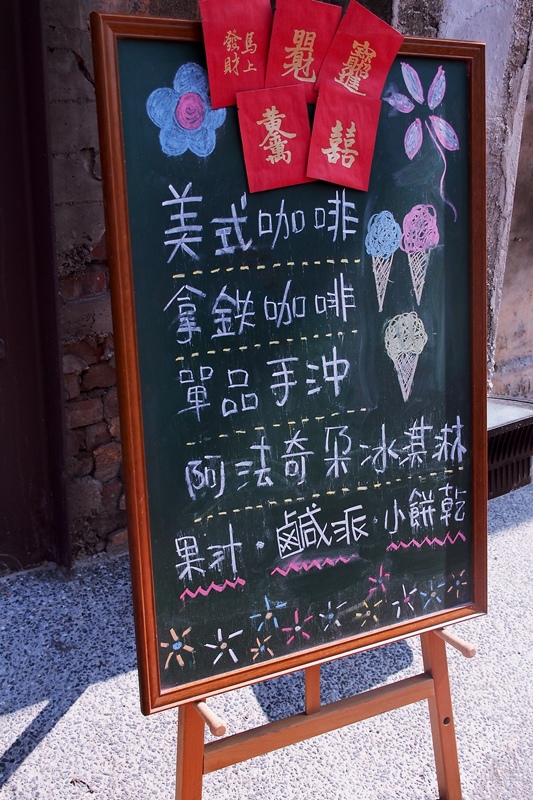 馬上
發財
招財進寶
黃金萬兩
囍
美式咖啡
拿鉄咖啡
單品手沖
阿法奇朵冰淇淋
果汁·鹹派·小餅乾